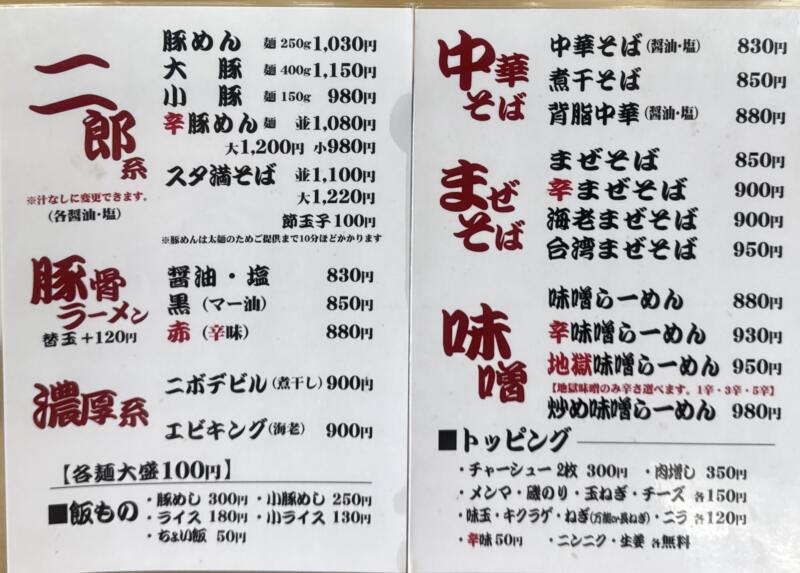 二郎系
※汁なしに変更できます。
(各醤油・塩)
豚めん 麺250g 1,030円
大 豚 麺400g 1,150円
小 豚 麺150g 980円
辛豚めん 麺 並1,080円
大1,200円 小980円
スタ満そば 並1,100円
大1,220円
節玉子100円
※豚めんは太麺のためご提供まで10分ほどかかります
豚骨ラーメン
替玉+120円
醤油・塩 830円
黒(マー油) 850円
赤(辛味) 880円
濃厚系
ニボデビル(煮干し)900円
エビキング(海老) 900円
【各麺大盛100円】
■飯もの
・豚めし 300円 ・小豚めし 250円
・ライス 180円 ・小ライス 130円
・ちょい飯 50円
中華そば
中華そば(醤油・塩) 830円
煮干そば 850円
背脂中華(醤油・塩) 880円
まぜそば
まぜそば 850円
辛まぜそば 900円
海老まぜそば 900円
台湾まぜそば 950円
味噌
味噌らーめん 880円
辛味噌らーめん 930円
地獄味噌らーめん 950円
【地獄味噌のみ辛さ選べます。1辛・3辛・5辛】
炒め味噌らーめん 980円
■トッピング
・チャーシュー2枚 300円 ・肉増し 350円
・メンマ・磯のり・玉ねぎ・チーズ 各150円
・味玉・キクラゲ・ねぎ(万能or長ねぎ)・ニラ 各120円
・辛味50円 ・ニンニク・生姜 各無料